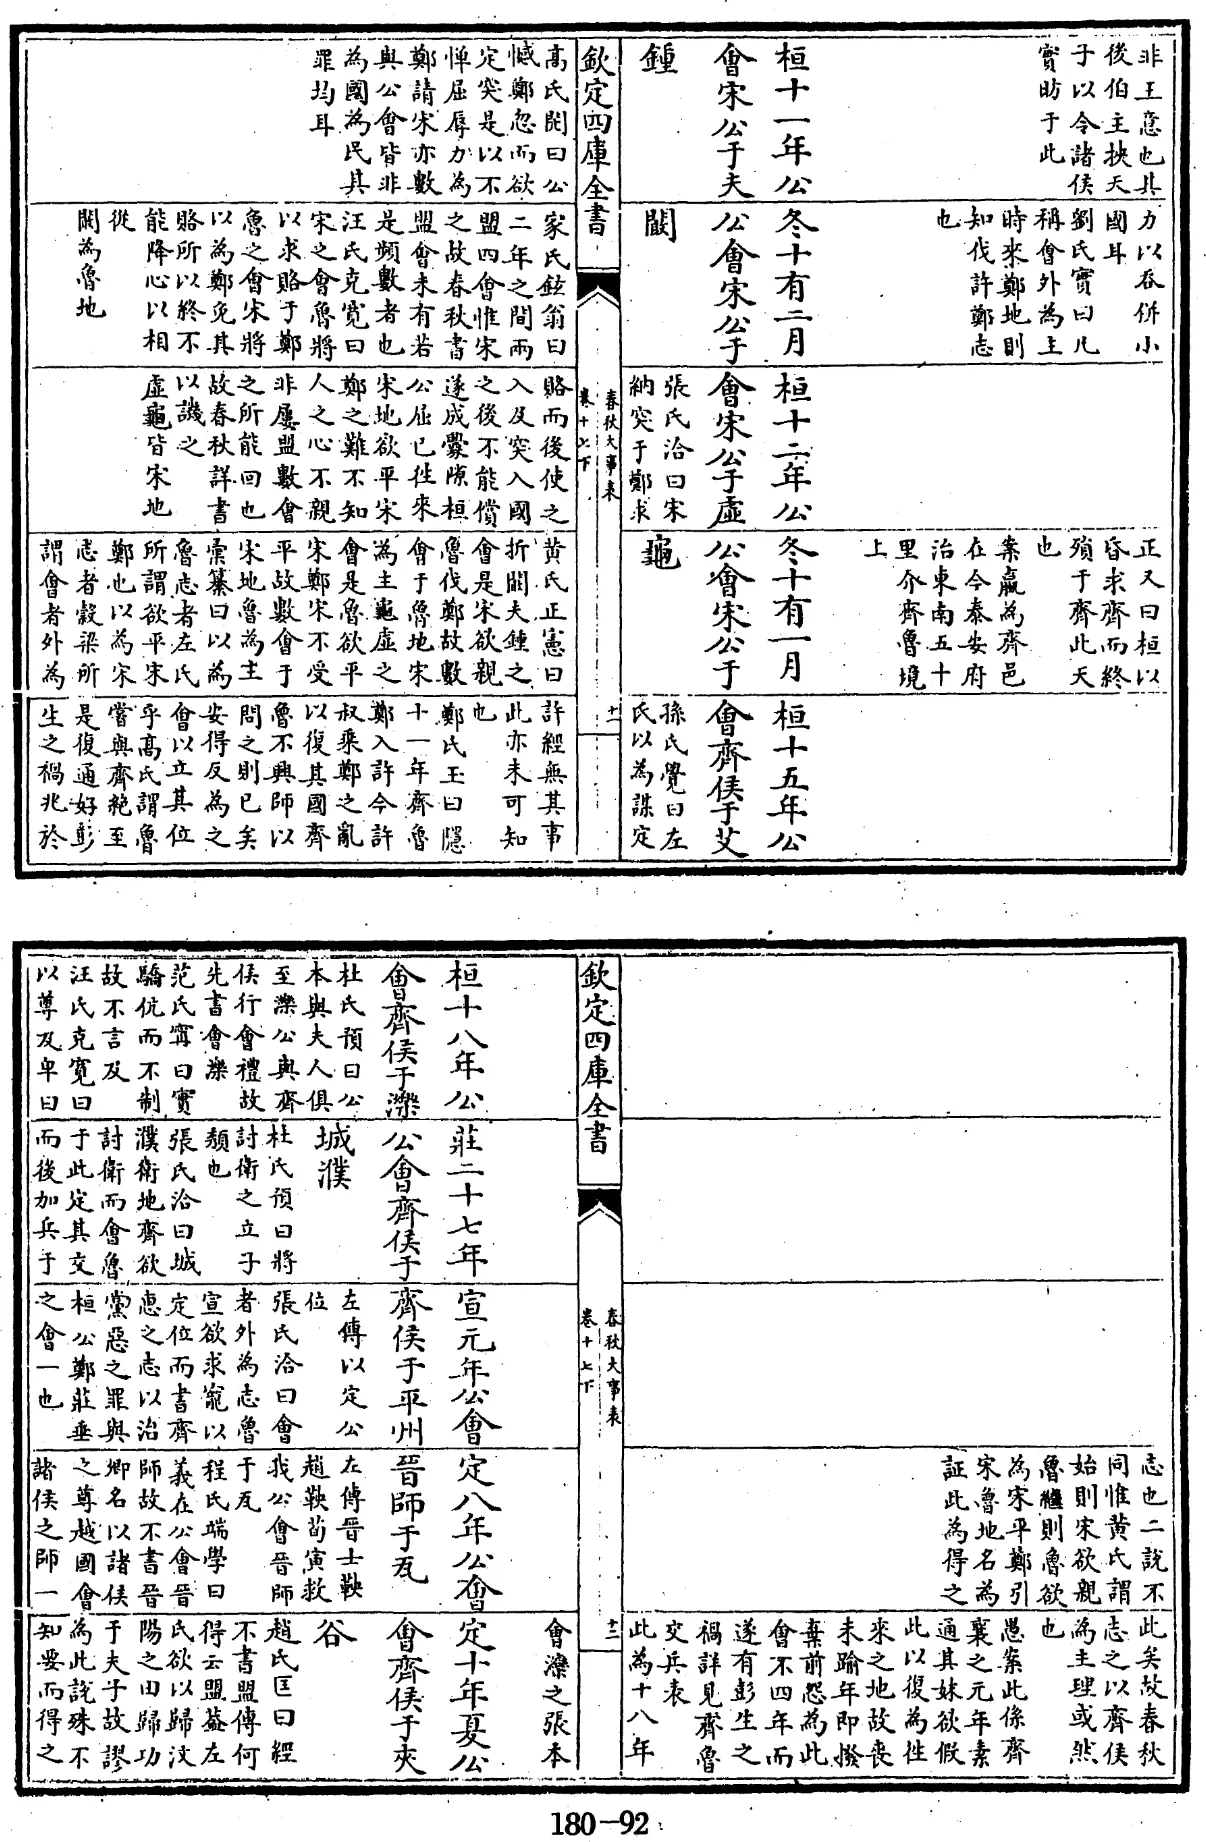 非王意也其
後伯主挾天
子以令諸侯
實昉于此
桓十一年公
會宋公于夫
鍾
力以吞併小
國耳
劉氏實曰凡
稱會外為主
時來鄭地則
知伐許鄭志
也
冬十有二月
公會宋公于
闞
桓十二年公
會宋公于虛
張氏洽曰宋
納突于鄭求
正又曰桓以
昏求齊而終
殞于齊此天
也
案嬴為齊邑
在今泰安府
治東南五十
里介齊魯境
上
冬十有一月
公會宋公于
龜
桓十五年公
會齊侯于艾
孫氏覺曰左
氏以為謀定
欽定四庫全書
春秋大事表
卷十七下
十一
高氏閌曰公
憾鄭忽而欲
定突是以不
憚屈辱力為
鄭請宋亦數
與公會皆非
為國為民其
罪均耳
家氏鉉翁曰
二年之間兩
盟四會惟宋
之故春秋書
盟會未有若
是頻數者也
汪氏克寛曰
宋之會魯將
以求賂于鄭
魯之會宋將
以為鄭免其
賂所以終不
能降心以相
從
闞為魯地
賂而後使之
入及突入國
之後不能償
遂成釁隙桓
公屈已徃來
宋地欲平宋
鄭之難不知
人之心不親
非屢盟數會
之所能回也
故春秋詳書
以譏之
虛龜皆宋地
黄氏正憲曰
折闞夫鍾之
會是宋欲親
魯伐鄭故數
會于魯地宋
為主龜虛之
會是魯欲平
宋鄭宋不受
平故數會于
宋地魯為主
彚纂曰以為
魯志者左氏
所謂欲平宋
鄭也以為宋
志者穀梁所
謂會者外為
許經無其事
此亦未可知
也
鄭氏玉曰隱
十一年齊魯
鄭入許今許
叔乘鄭之亂
以復其國齊
魯不興師以
問之則已矣
安得反為之
會以立其位
乎髙氏謂魯
嘗與齊絶至
是復通好彭
生之禍兆於
志也二說不
同惟黄氏謂
始則宋欲親
魯繼則魯欲
為宋平鄭引
宋魯地名為
証此為得之
此矣故春秋
志之以齊侯
為主理或然
也
愚案此係齊
襄之元年素
通其妹欲假
此以復為徃
來之地故喪
未踰年即撥
棄前怨為此
會不四年而
遂有彭生之
禍詳見齊魯
交兵表
此為十八年
欽定四庫全書
春秋大事表
卷十七下
十二
會濼之張本
桓十八年公
會齊侯于濼
杜氏預曰公
本與夫人俱
至濼公與齊
侯行會禮故
先書會濼
范氏甯曰實
驕伉而不制
故不言及
汪氏克寛曰
以尊及卑曰
莊二十七年
公會齊侯于
城濮
杜氏預曰將
討衛之立子
頽也
張氏洽曰城
濮衛地齊欲
討衛而會魯
于此定其交
而後加兵于
宣元年公會
齊侯于平州
左傳以定公
位
張氏洽曰會
者外為志魯
宣欲求寵以
定位而書齊
惠之志以治
黨惡之罪與
桓公鄭莊垂
之會一也
定八年公會
晉師于瓦
左傳晉士鞅
趙鞅荀寅救
我公會晉師
于瓦
程氏端學曰
義在公會晉
師故不書晉
卿名以諸侯
之尊越國會
諸侯之師一
定十年夏公
會齊侯于夾
谷
趙氏匡曰經
不書盟傳何
得云盟葢左
氏欲以歸汶
陽之田歸功
于夫子故謬
為此說殊不
知要而得之
180-92